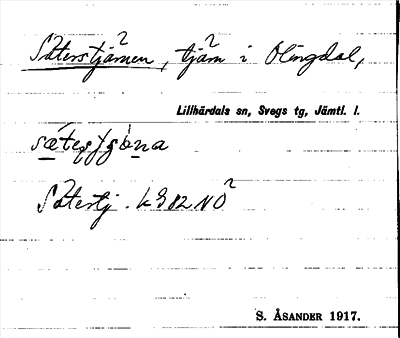 Säterstjärnen, tjärn i Olingdal,
Lillhärdals sn, Svegs tg, Jämtl. l.
Sätertj. k g 82 NO
S. ÅSANDER 1917.